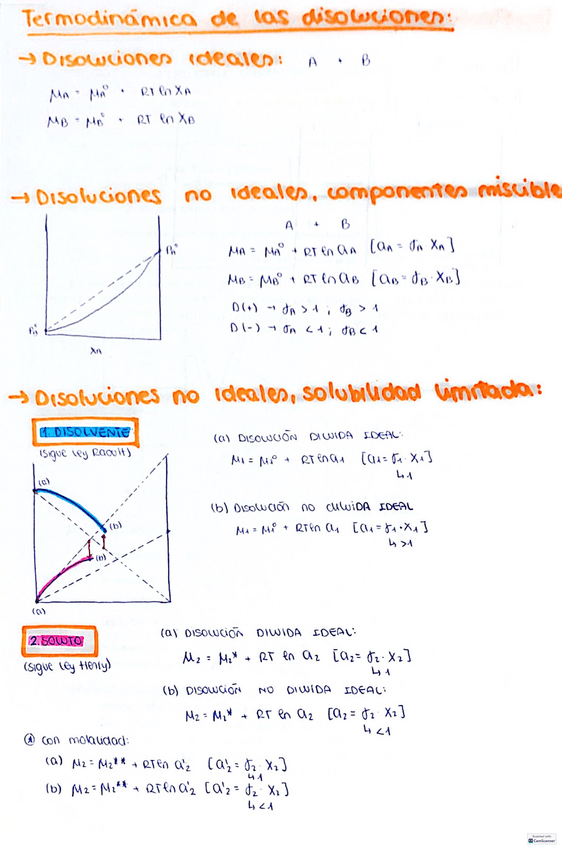 Termodinámica de las disoluciones:
→ Disoluciones ideales: A + B
μA = μA° + RT ln XA
μB = μB° + RT ln XB
→ Disoluciones no ideales, componentes miscible
A + B
μA = μA° + RT ln aA [aA = γA XA]
μB = μB° + RT ln aB [aB = γB · XB]
D(+) → γA > 1 ; γB > 1
D(-) → γA < 1 ; γB < 1
XA
→ Disoluciones no ideales, solubilidad limitada:
1. DISOLVENTE
(sigue ley Raoult)
(a)
(b)
(b)
(a)
(a) DISOLUCIÓN DILUIDA IDEAL:
μ1 = μ1° + RT ln a1 [a1 = γ1 X1]
↳ 1
(b) DISOLUCIÓN NO DILUIDA IDEAL
μ1 = μ1° + RT ln a1 [a1 = γ1 · X1]
↳ >1
2. SOLUTO
(sigue ley Henry)
(a) DISOLUCIÓN DILUIDA IDEAL:
μ2 = μ2* + RT ln a2 [a2 = γ2 · X2]
↳ 1
(b) DISOLUCIÓN NO DILUIDA IDEAL:
μ2 = μ2* + RT ln a2 [a2 = γ2 X2]
↳ <1
⊛ con molalidad:
(a) μ2 = μ2** + RT ln a'2 [a'2 = γ2 · X2]
↳ 1
(b) μ2 = μ2** + RT ln a'2 [a'2 = γ2 · X2]
↳ <1
CamScanner